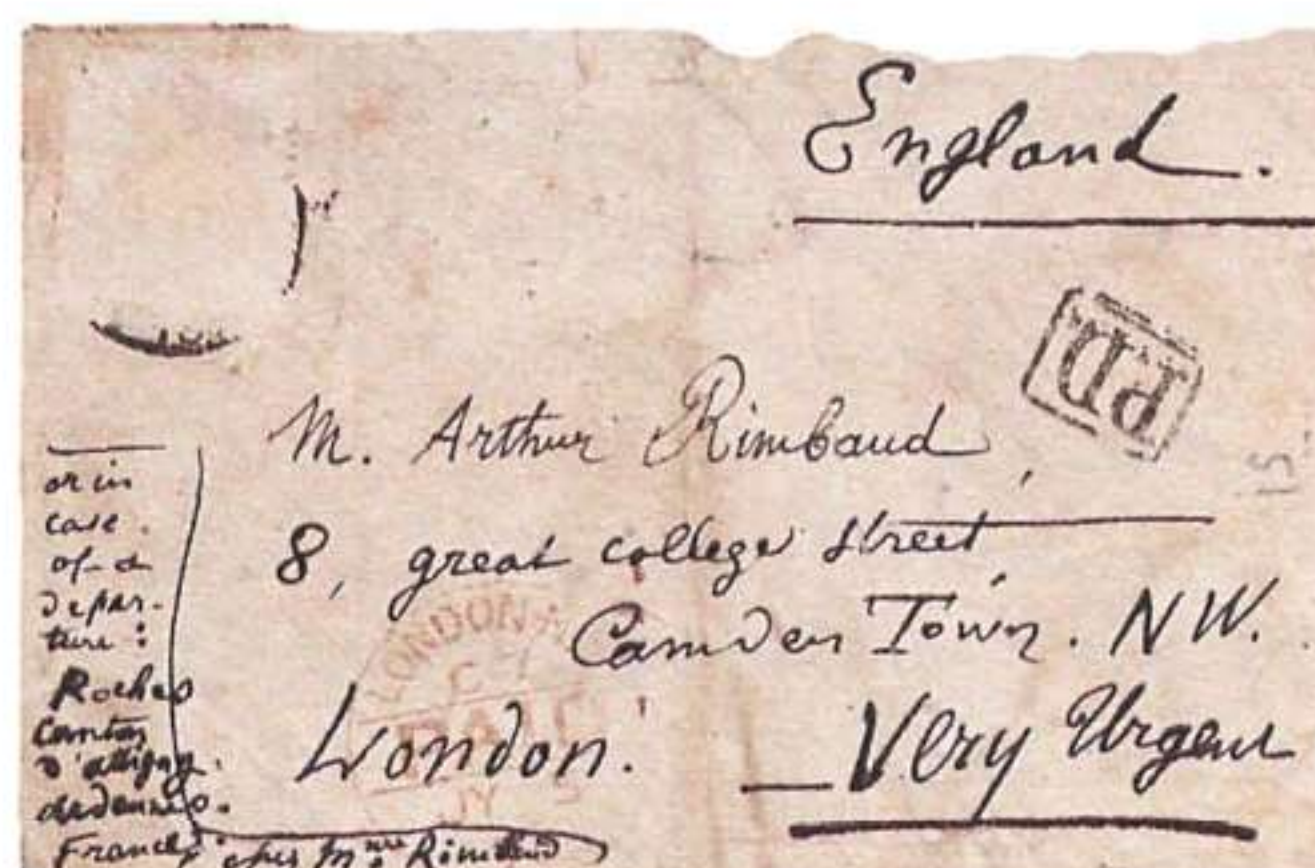 England.
PD
M. Arthur Rimbaud,
8, great college street,
Camden Town. N W.
London.
Very Urgent
LONDON
PAID
or in
case
of a
depar-
ture :
Roches
Canton
d'attigny.
Ardennes.
France chez Mme Rimbaud